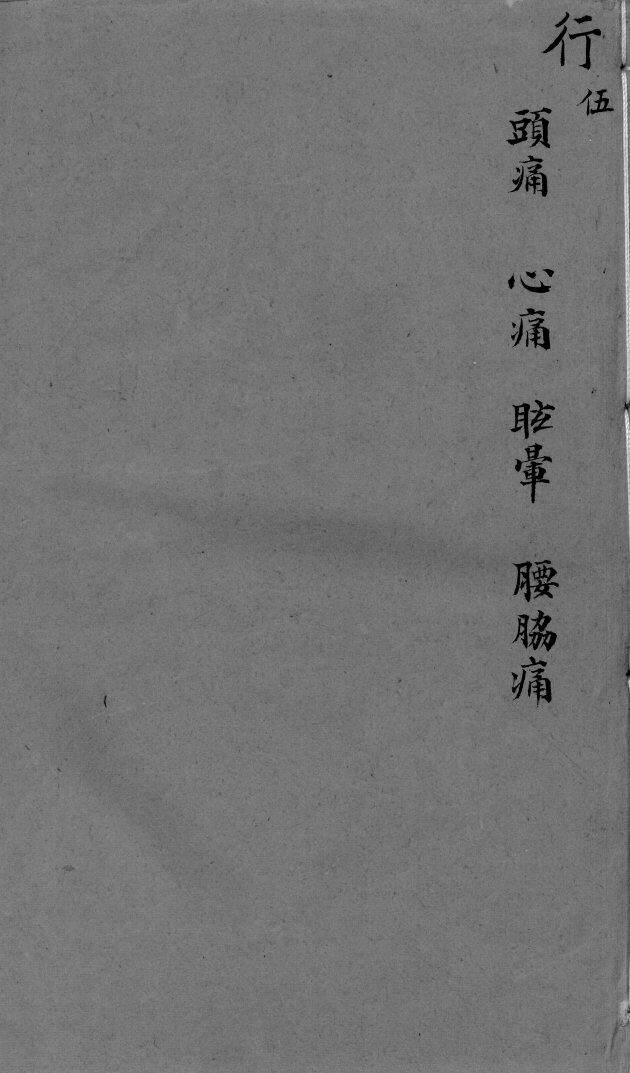 行
伍
頭痛　心痛　眩暈　腰脇痛